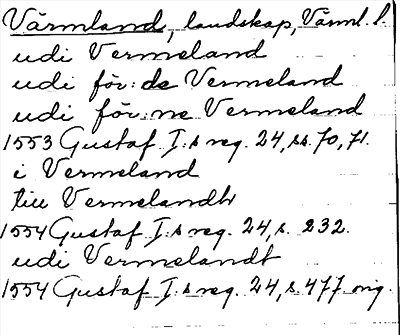 Värmland, landskap, Värml. l.
udi Vermeland
udi för:de Vermeland
udi för:ne Vermeland
1553 Gustaf I:s reg. 24, ss. 70, 71.
i Vermeland
till Vermelandh
1554 Gustaf I:s reg. 24, s. 232.
udi Vermelandt
1554 Gustaf I:s reg. 24, s. 477 orig.